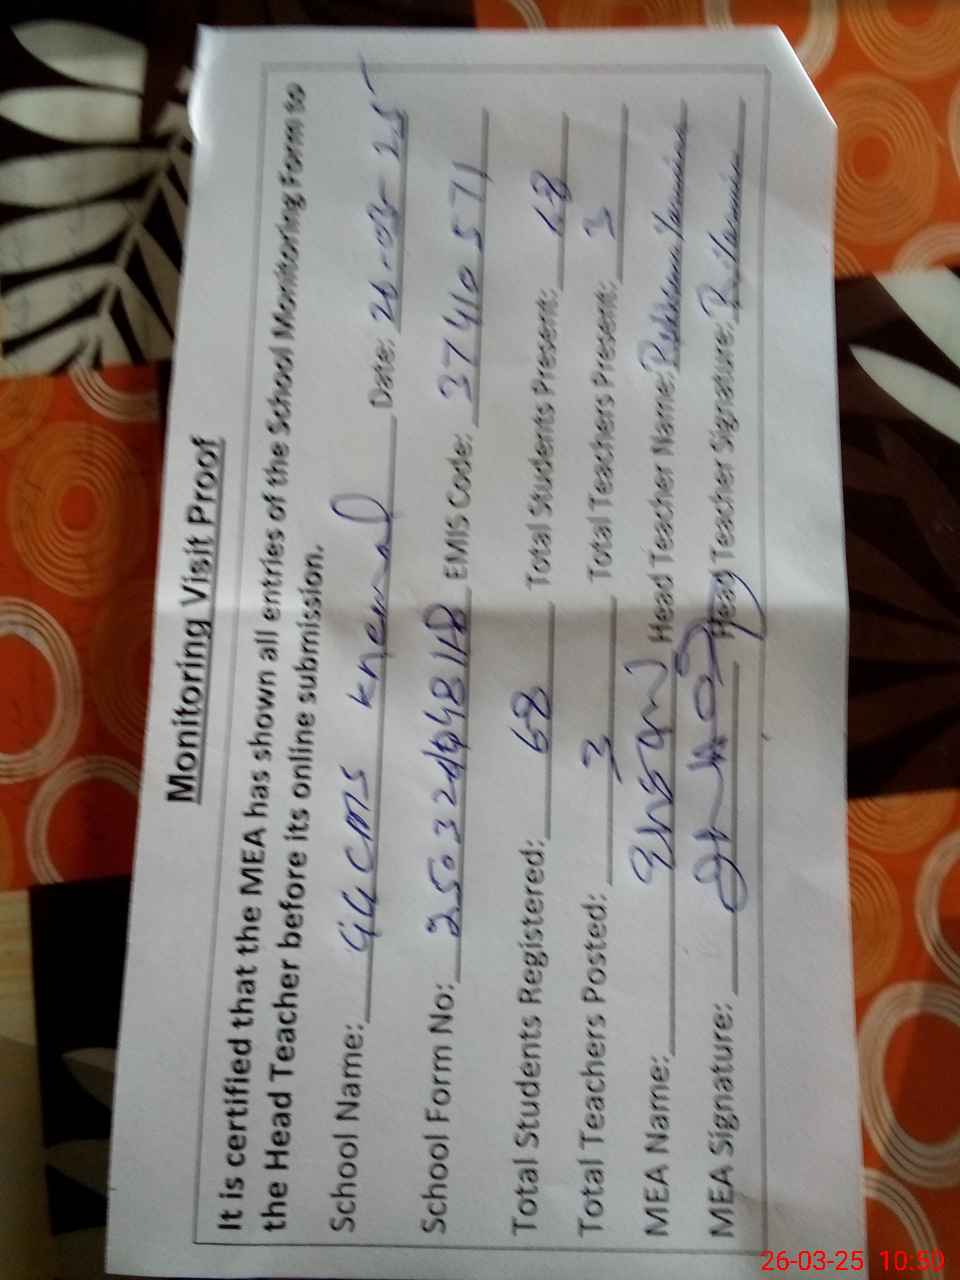 Monitoring Visit Proof
It is certified that the MEA has shown all entries of the School Monitoring Form to
the Head Teacher before its online submission.
School Name: GGCMS Date: 26-03-25
School Form No: EMIS Code: 37410571
Total Students Registered: 68 Total Students Present:
Total Teachers Posted: 3 Total Teachers Present: 3
MEA Name: Head Teacher Name: Yasmin
MEA Signature: Head Teacher Signature: R. Yasmin
26-03-25 10:50